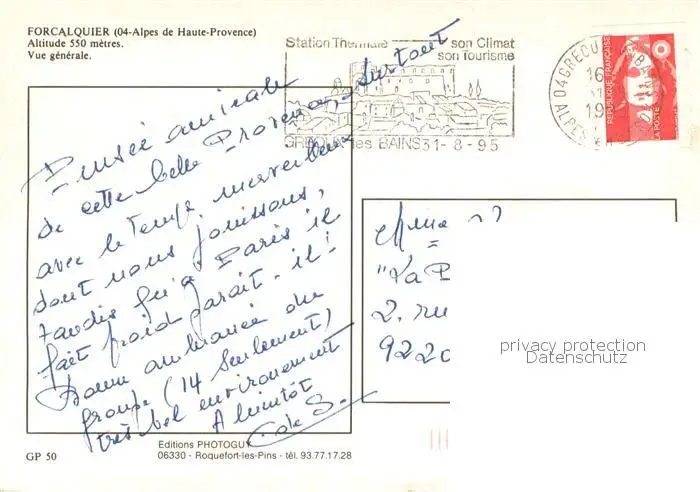 FORCALQUIER (04-Alpes de Haute-Provence)
Altitude 550 mètres.
Vue générale.
Station Thermale son Climat
son Tourisme
GREOUX les BAINS 31-8-95
04 GREOUX
ALPES
REPUBLIQUE FRANÇAISE
LA POSTE
Pensée amicale
de cette belle Provence, surtout
avec le temps merveilleux
dont nous jouissons,
tandis qu'à Paris il
fait froid parait-il!
Bonne ambiance du
groupe (14 seulement)
très bel environement
A bientôt
Mme
"La P
2. ru
9220
privacy protection
Datenschutz
Editions PHOTOGUY
06330 - Roquefort-les-Pins - tél. 93.77.17.28
GP 50